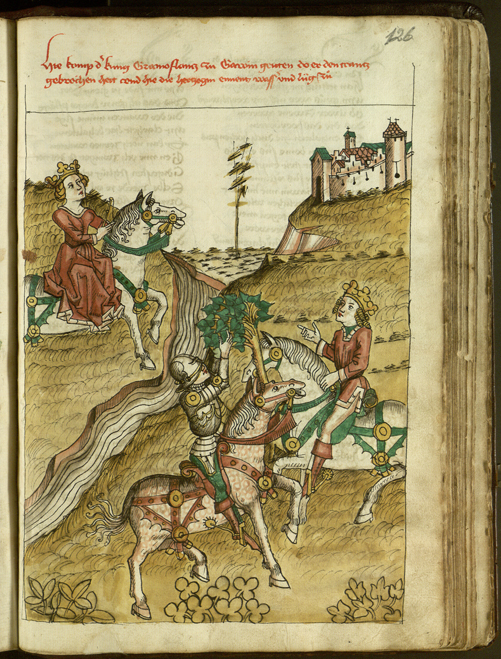 126
Hie kumpt d' kung Gramoflantz zu Gawin geriten do er den krantz
gebrochen hett vnd hie die hertzogin ennent wass vnd lůgt zů